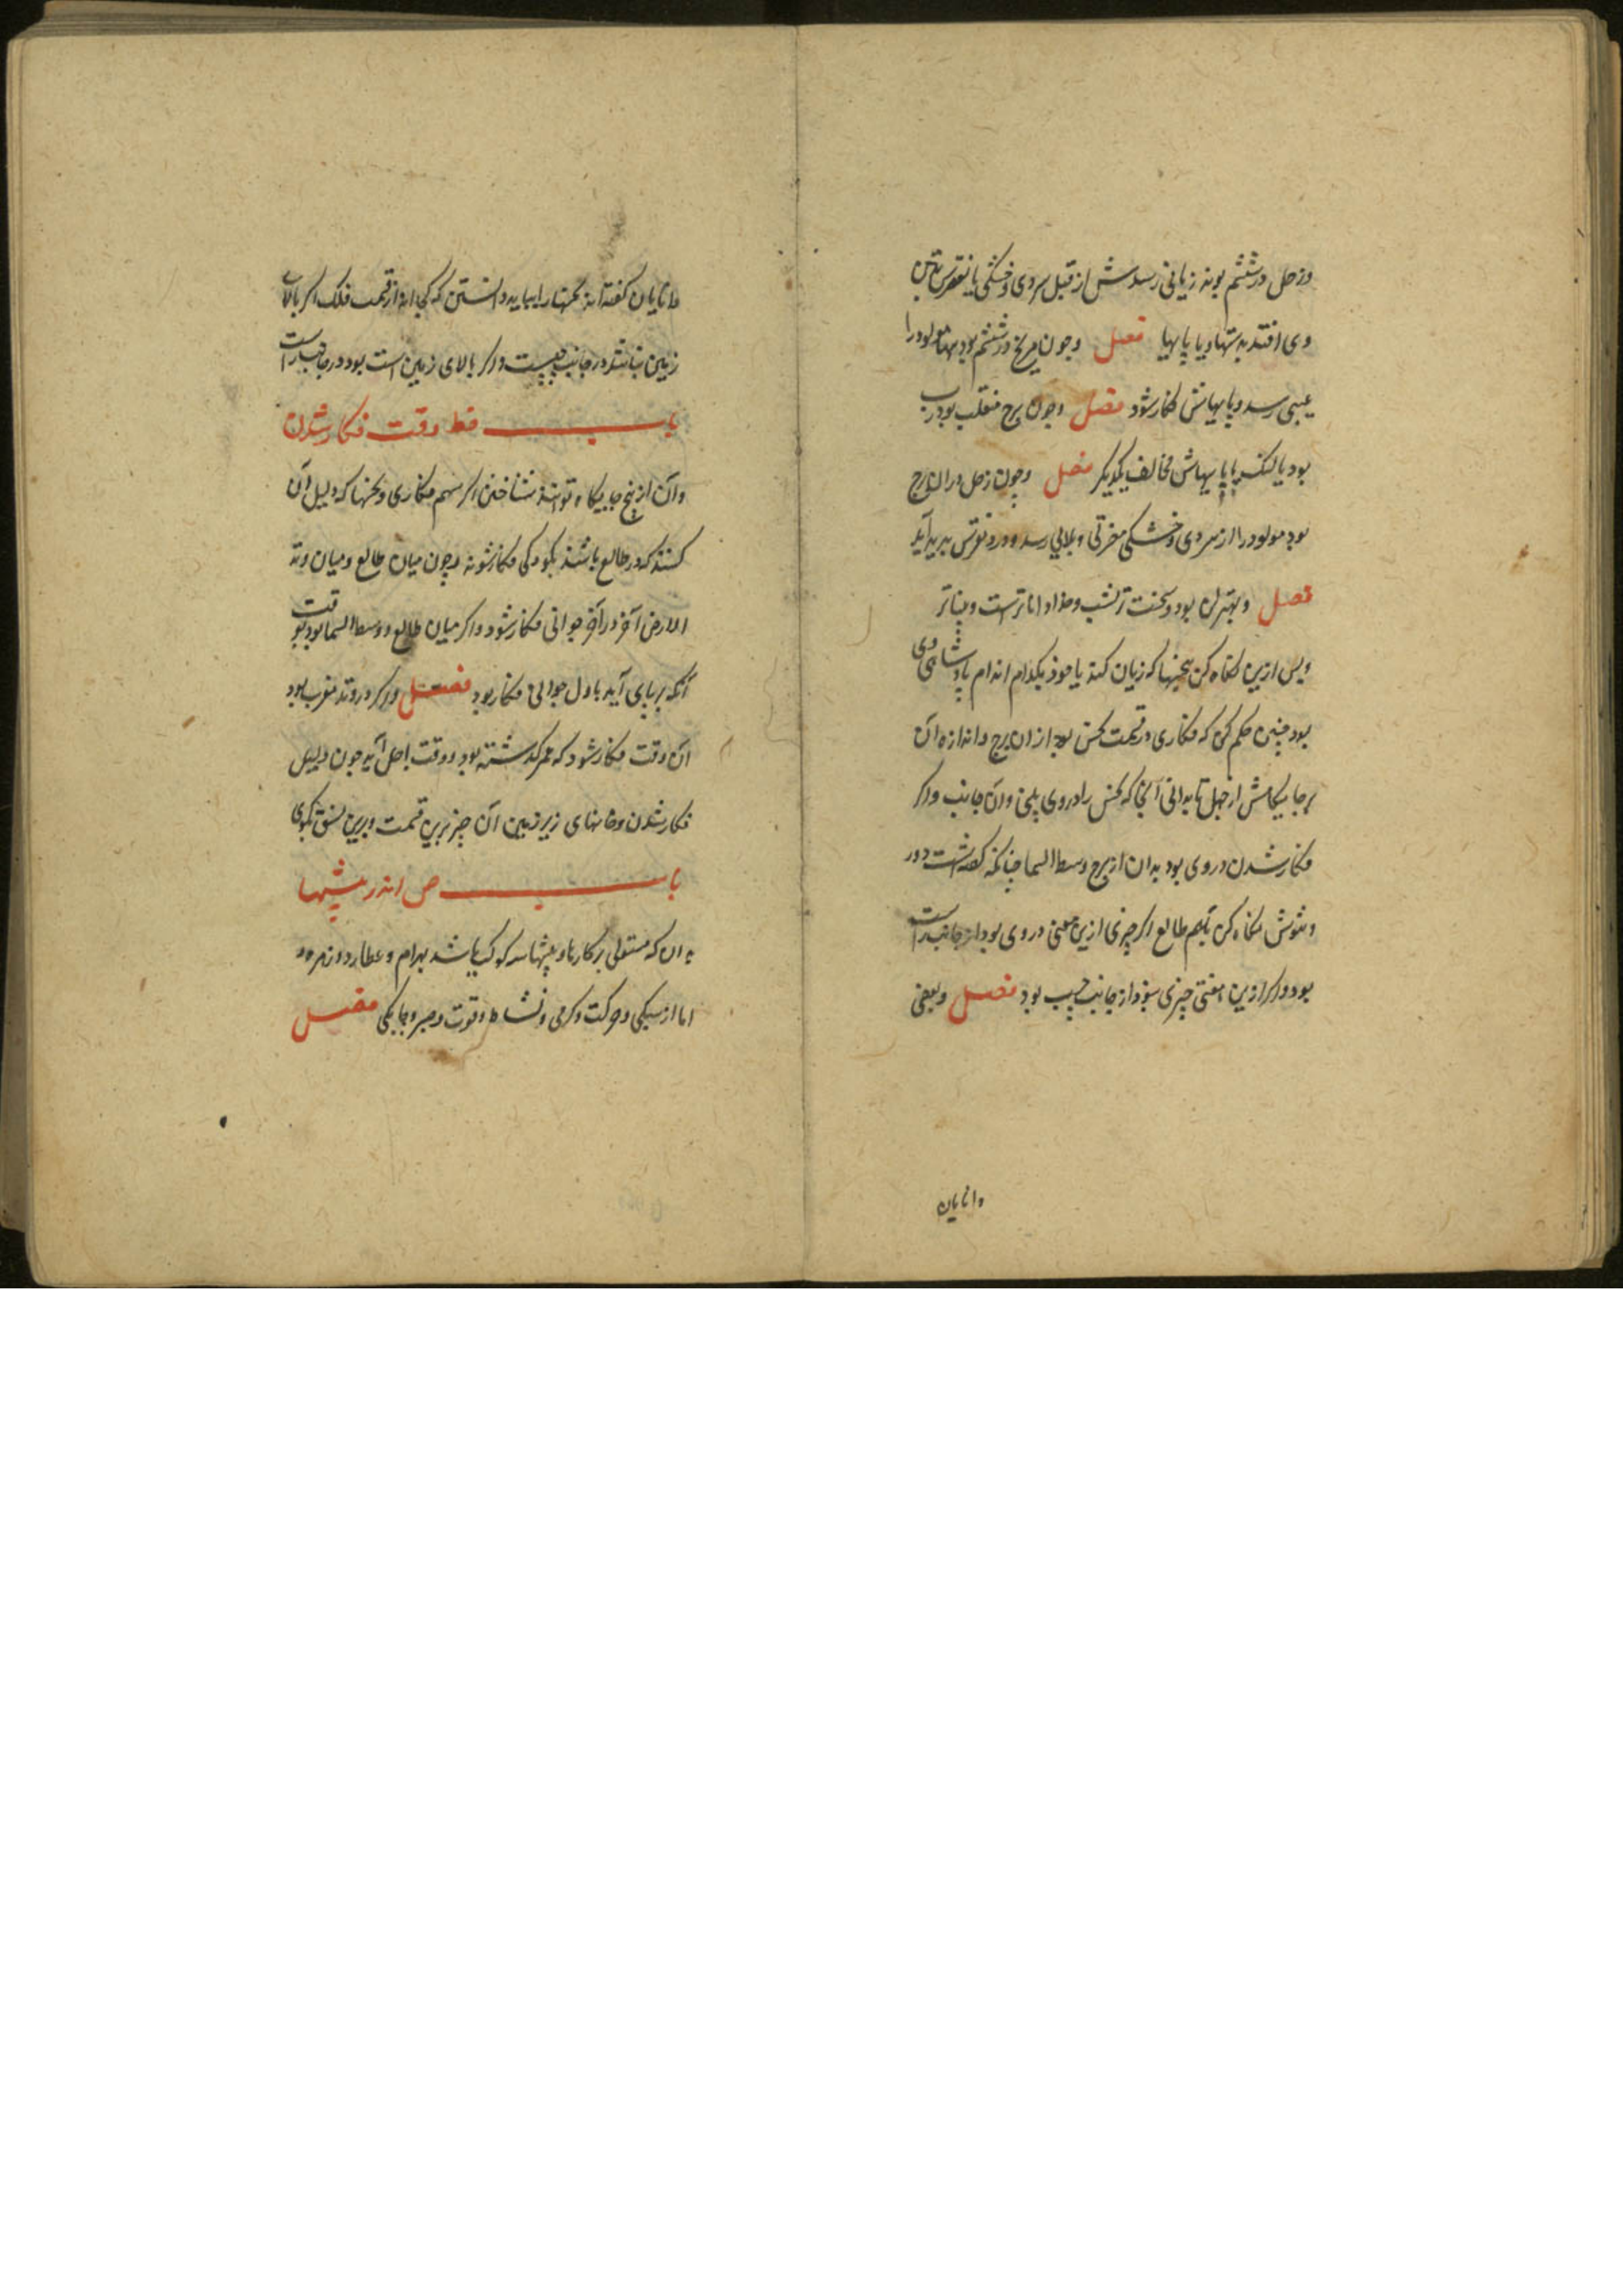 وزحل در ششم بوند زیانی رسدش از قبل سردی وخشکی یا نقرس بتن
وی افتد بدستها ویا پایها فصل وچون مریخ در ششم بود مولود را
عیبی رسد وپایهاش فکار شود فصل وچون برج منقلب بود
بود یا لنک یا پایهاش مخالف یکدیکر فصل وچون زحل در ان برج
بود مولود را از سردی وخشکی مضرتی وبلایی رسد ودرد نقرس پدید آید
فصل وبهترین بود وسخت تر شب
وپس ازین نکاه کن بنحسها که زیان کند یا خود بکدام اندام پادشاهی وی
بود چنین حکم کن که فکاری در قسمت نحس بود از ان برج واندازه آن
برجایکاهش از حمل تا بدانی آنجا که نحس را در وی یابی وان جانب واکر
فکار شدن در وی بود بدان از برج وسط السما چنانکه کفته است دور
ونتوش نکاه کن بسهم طالع اکر چیزی ازین معنی در وی بود از جانب راست
بود واکر ازین معنی چیزی نبود از جانب چپ بود فصل وبعضی
دانایان
دانایان کفته اند نحسها را بباید دانستن که کجا اند از قسمت فلک اکر بالای
زمین نباشند در جانب چپست واکر بالای زمین است بود در جانب راست
باب فط وقت فکار شدن
وآن از پنج جایکاه توانند شناختن اکر سهم فکاری ونحسها که دلیل آن
کنند که در طالع باشند بکودکی فکار شوند وچون میان طالع ومیان وتد
الارض آخر در آخر جوانی فکار شود واکر میان طالع ووسط السما بود بوقت
آنکه بر پای آید باول جوانی فکار بود فصل واکر در وتد مغرب بود
آن وقت فکار شود که عمر کذشته بود ووقت اجل آید چون دلیل
فکار شدن وخانهای زیر زمین آن چیز برین قسمت وبرین نسق بکوی
باب ص اندر پیشها
بدان که مستولی بر کارها وپیشها سه کوکب باشد بهرام وعطارد وزهره
اما از سبکی وحرکت وکرمی ونشاط وقوت وصبر وچابکی فصل